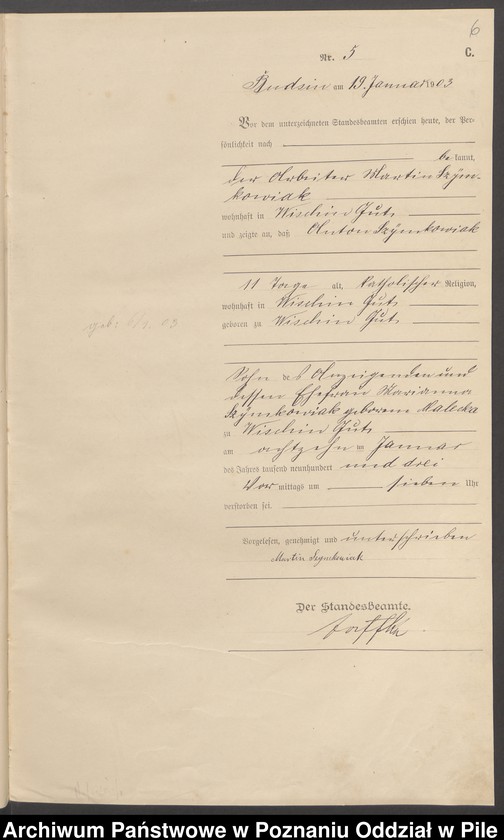 6
Nr. 5 C.
Budsin am 19. Januar 1903
Vor dem unterzeichneten Standesbeamten erschien heute, der Per-
sönlichkeit nach
bekannt,
der Arbeiter Martin Szym-
kowiak
wohnhaft in Wischin Gut,
und zeigte an, daß Anton Szymkowiak
11 Tage alt, katholischer Religion,
wohnhaft in Wischin Gut
geboren zu Wischin Gut,
geb: 8/1. 03
Sohn des Anzeigenden und
dessen Ehefrau Marianna
Szymkowiak geborene Malecka
zu Wischin Gut,
am achtzehn ten Januar
des Jahres tausend neunhundert und drei
Vor mittags um sieben Uhr
verstorben sei.
Vorgelesen, genehmigt und unterschrieben
Martin Szymkowiak
Der Standesbeamte.
Archiwum Państwowe w Poznaniu Oddział w Pile